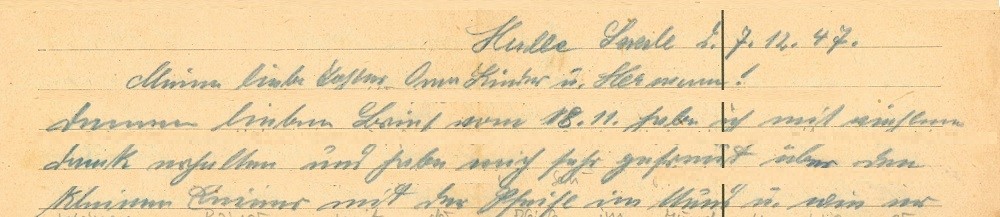 Halle Saale d. 7.12.47.
Meine liebe Oma Kinder u. Hermann!
Deinen lieben Brief vom 18.11. habe ich mit vielem
dank erhalten und habe mich sehr gefreut über den
kleinen mit der Pfeife im Mund u. wie er